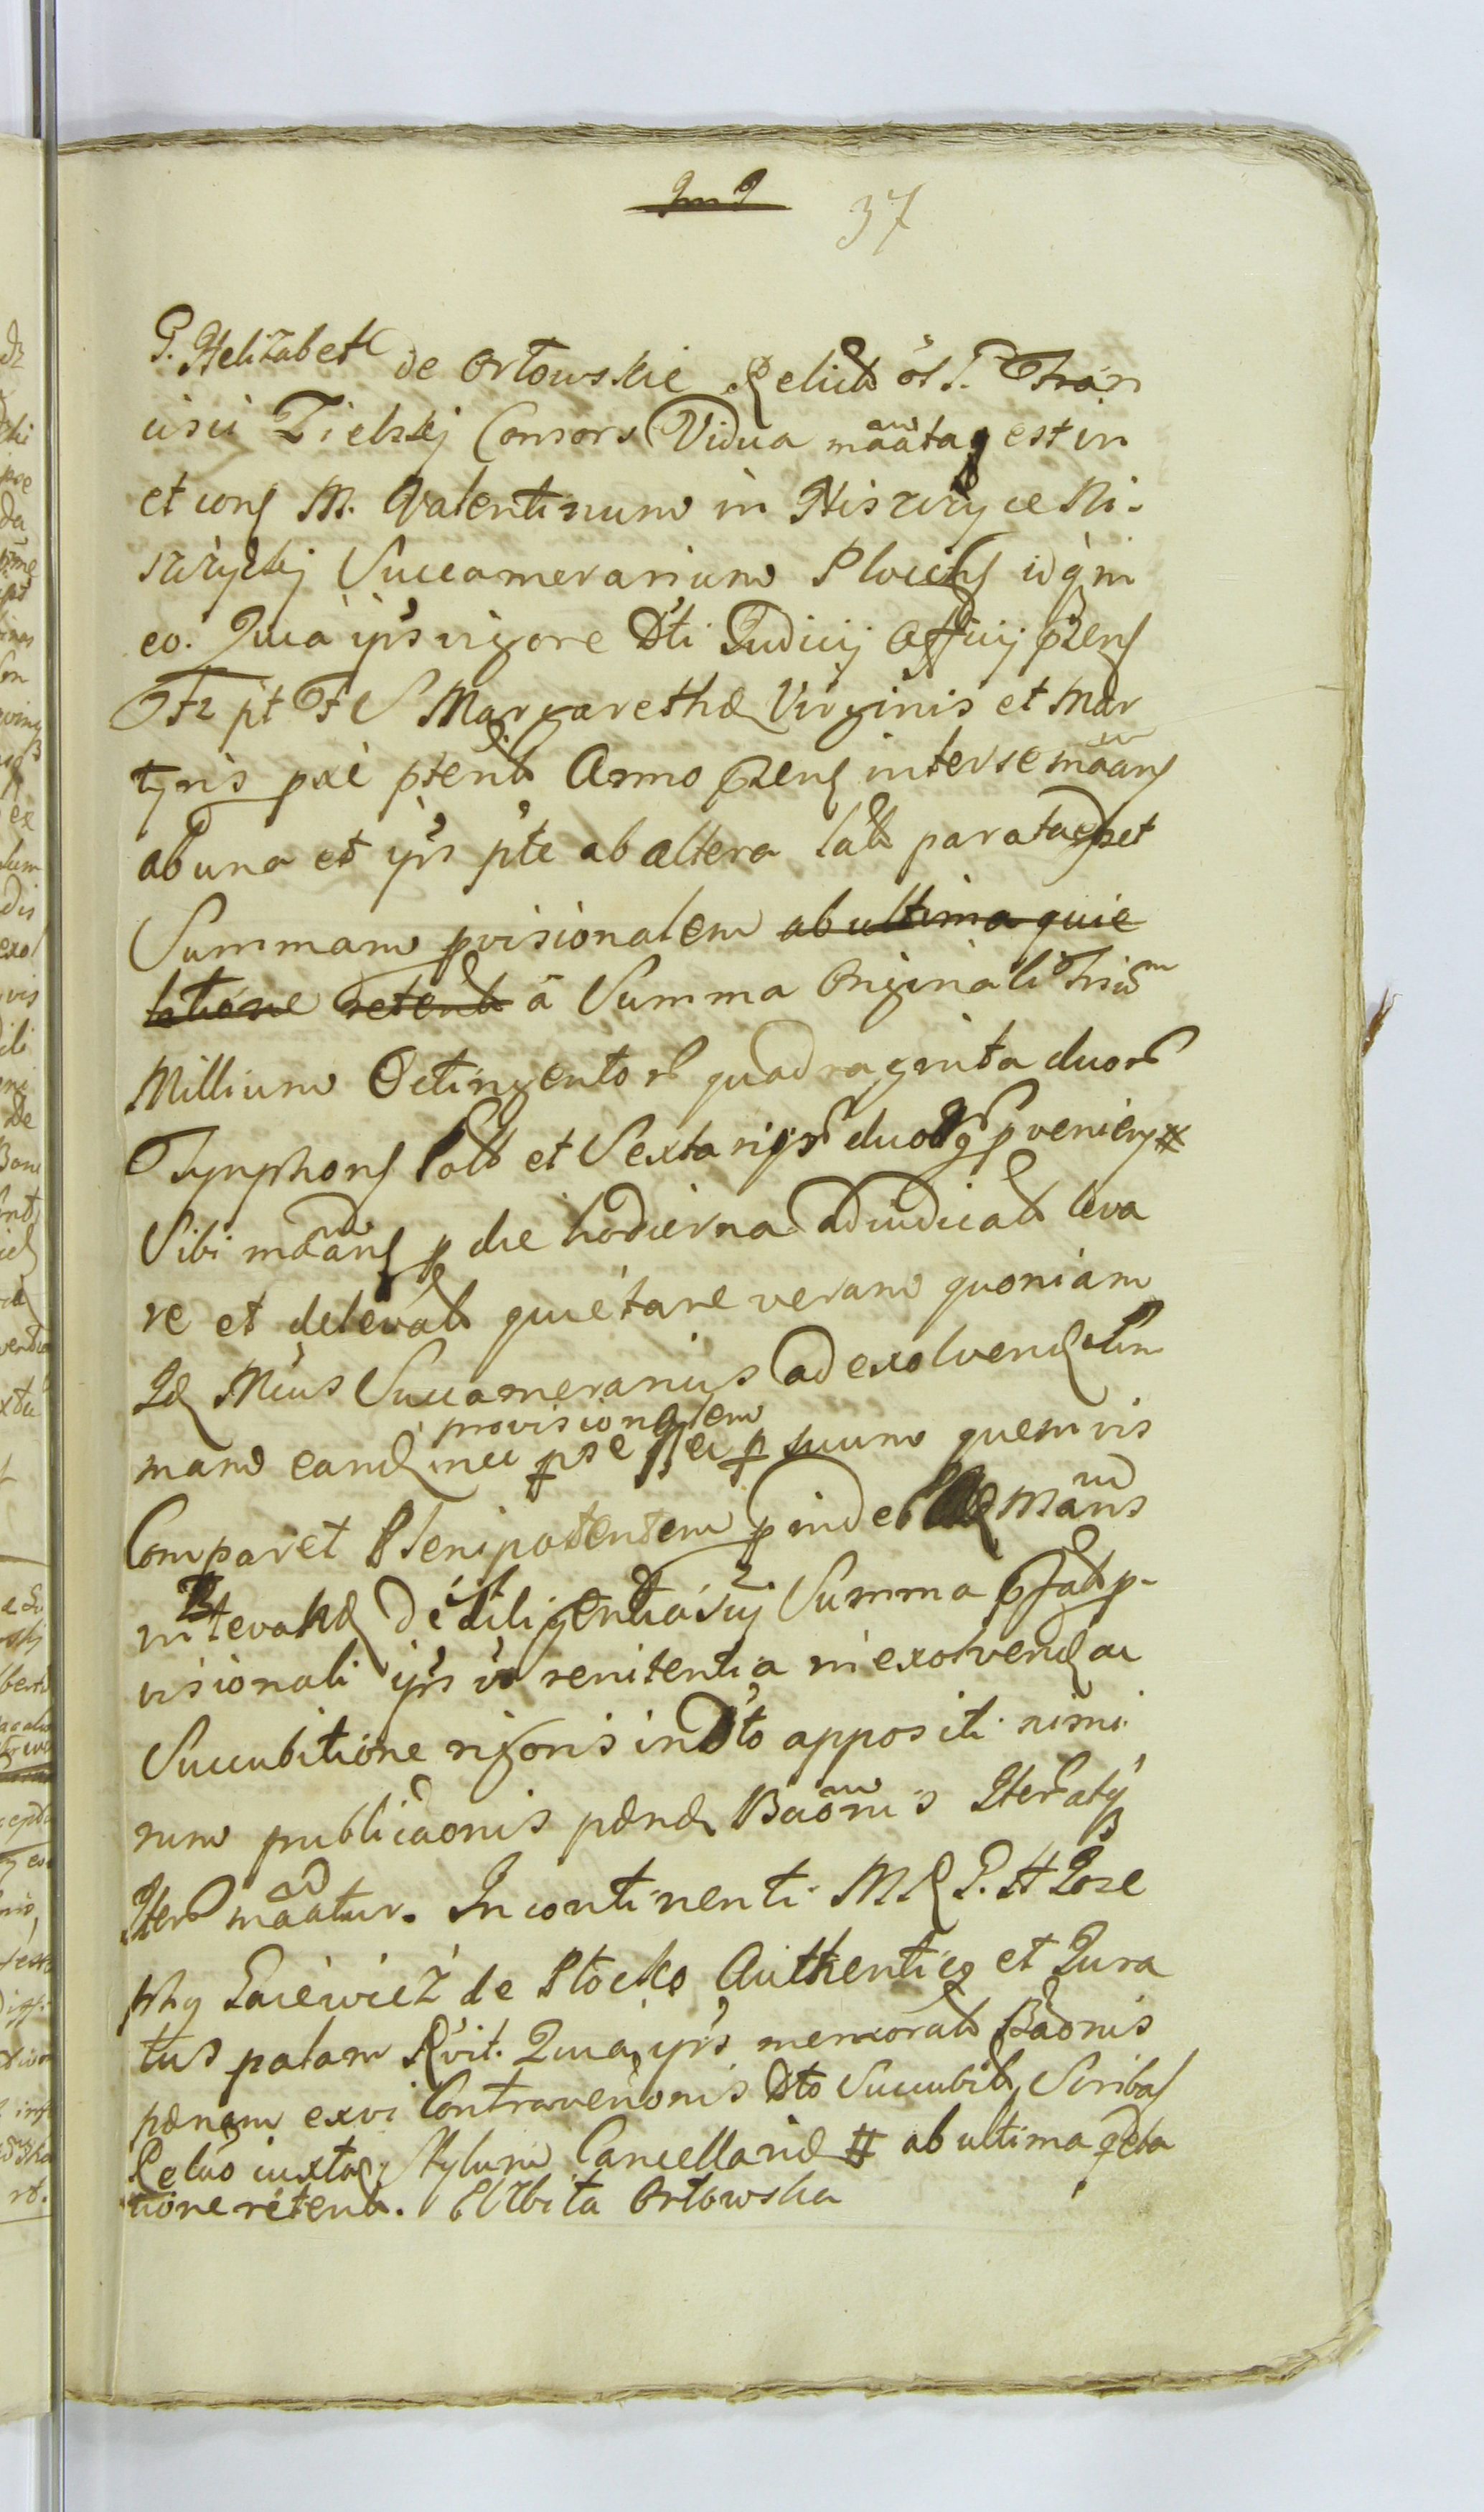 37
G. Helizabeth de Orłowskie Relicta ol. G. Fran
cisci Zielskij Consors Vidua maata est in
et cons M. Valentinum in Niszczyce Ni-
szczyckij Succamerarium Plocens idq in
eo. Quia ips vigore Dti Judicij Officij pzens
Fr pt F S Margarethæ Virginis et Mar
tyris pxe pterit Anno pzens inter se maans
ab una et ips pte ab altera lat parata esset
Summam pvisionalem ab ultima quie
tatione retent à Summa Originali Trium
Millium Octingentor quadraginta duor
Tymphons Pol et Sextarigr duor gr pveniens #
Sibi maans p die hodierna adiudicat leva
re et delevat quietare veram quoniam
Id Mcus Succamerarius ad exolvend Sum
provisionalem
mam eand nec p se nec p suum quemvis
Comparet Plenipotentem p inde Maans
in levand de diligentia sui Summa pfat p-
visionali ips v renitentia in exolvend ac
Succubitione rigoris in Dto appositi nimi
rum publicaonis pænæ Baonis Iteratq
Iter maatur. In continenti M R G. H Jose
ph Gaiewicz de Plocko Authenticq et Jura
tus palam Rvit. Quia ips memorat Baonis
pænam ex vi Contravenonis Dto Succubit Scribas
Relato iuxta Stylum Cancellariæ # ab ultima qeta
tione retent. Elzbita Orłowska